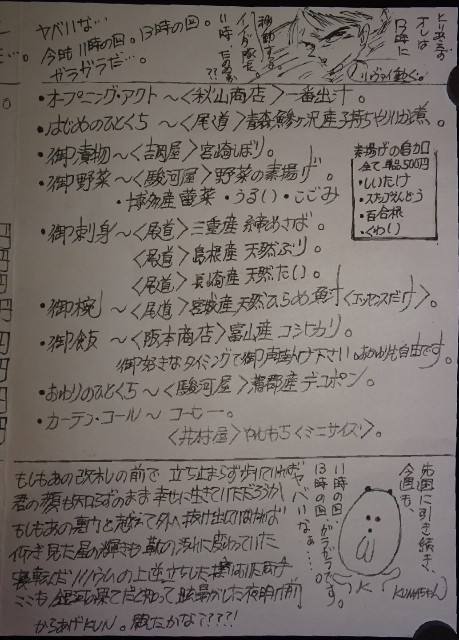 ヤバいな…
今時11時の回。13時の回。
ガラガラだ…。
11時だったのか??
オレは
13時に
動く。
・オープニング・アクト〜〈秋山商店〉一番出汁。
・はじめのひとくち〜〈尾道〉青森鯵ヶ沢産子持ちやりいか煮。
・御漬物〜〈吉岡屋〉宮崎しぼり。
・御野菜〜〈駿河屋〉野菜の素揚げ。
・博多産蕾菜・うるい・こごみ
素揚げの自加口
全て単品500円
・しいたけ
・スナップえんどう
・百合根
・くわい
・御刺身〜〈尾道〉三重産 めさば。
〈尾道〉島根産 天然ぶり。
〈尾道〉長崎産 天然たい。
・御椀〜〈尾道〉宮城産天然ひらめ魚汁〈エッセンスだけ〉。
・御飯〜〈阪本商店〉富山産コシヒカリ。
御好きなタイミングで御声掛け下さい。おかわりも自由です。
・おわりのひとくち〜〈駿河屋〉蒲郡産デコポン。
・カーテン・コール〜コーヒー。
〈井村屋〉やわもち〈ミニサイズ〉。
もしもあの改札の前で 立ち止まらず歩いていれば
君の顔も知らずのまま 幸せに生きていただろうか
もしもあの裏山を越えて外へ抜け出していなければ
仰ぎ見た星の輝きも 靴の汚れに変わっていた
寝転んだリノリウムの上 逆立ちした
ここも銀河の果てだと知って 眩暈がした夜明け前
からあげKUN。観たかな????!
11時の回、
13時の回、ガラガラです。
ヤバいなぁ…。
先週に引き続き、
今週も、
KUMAちゃん